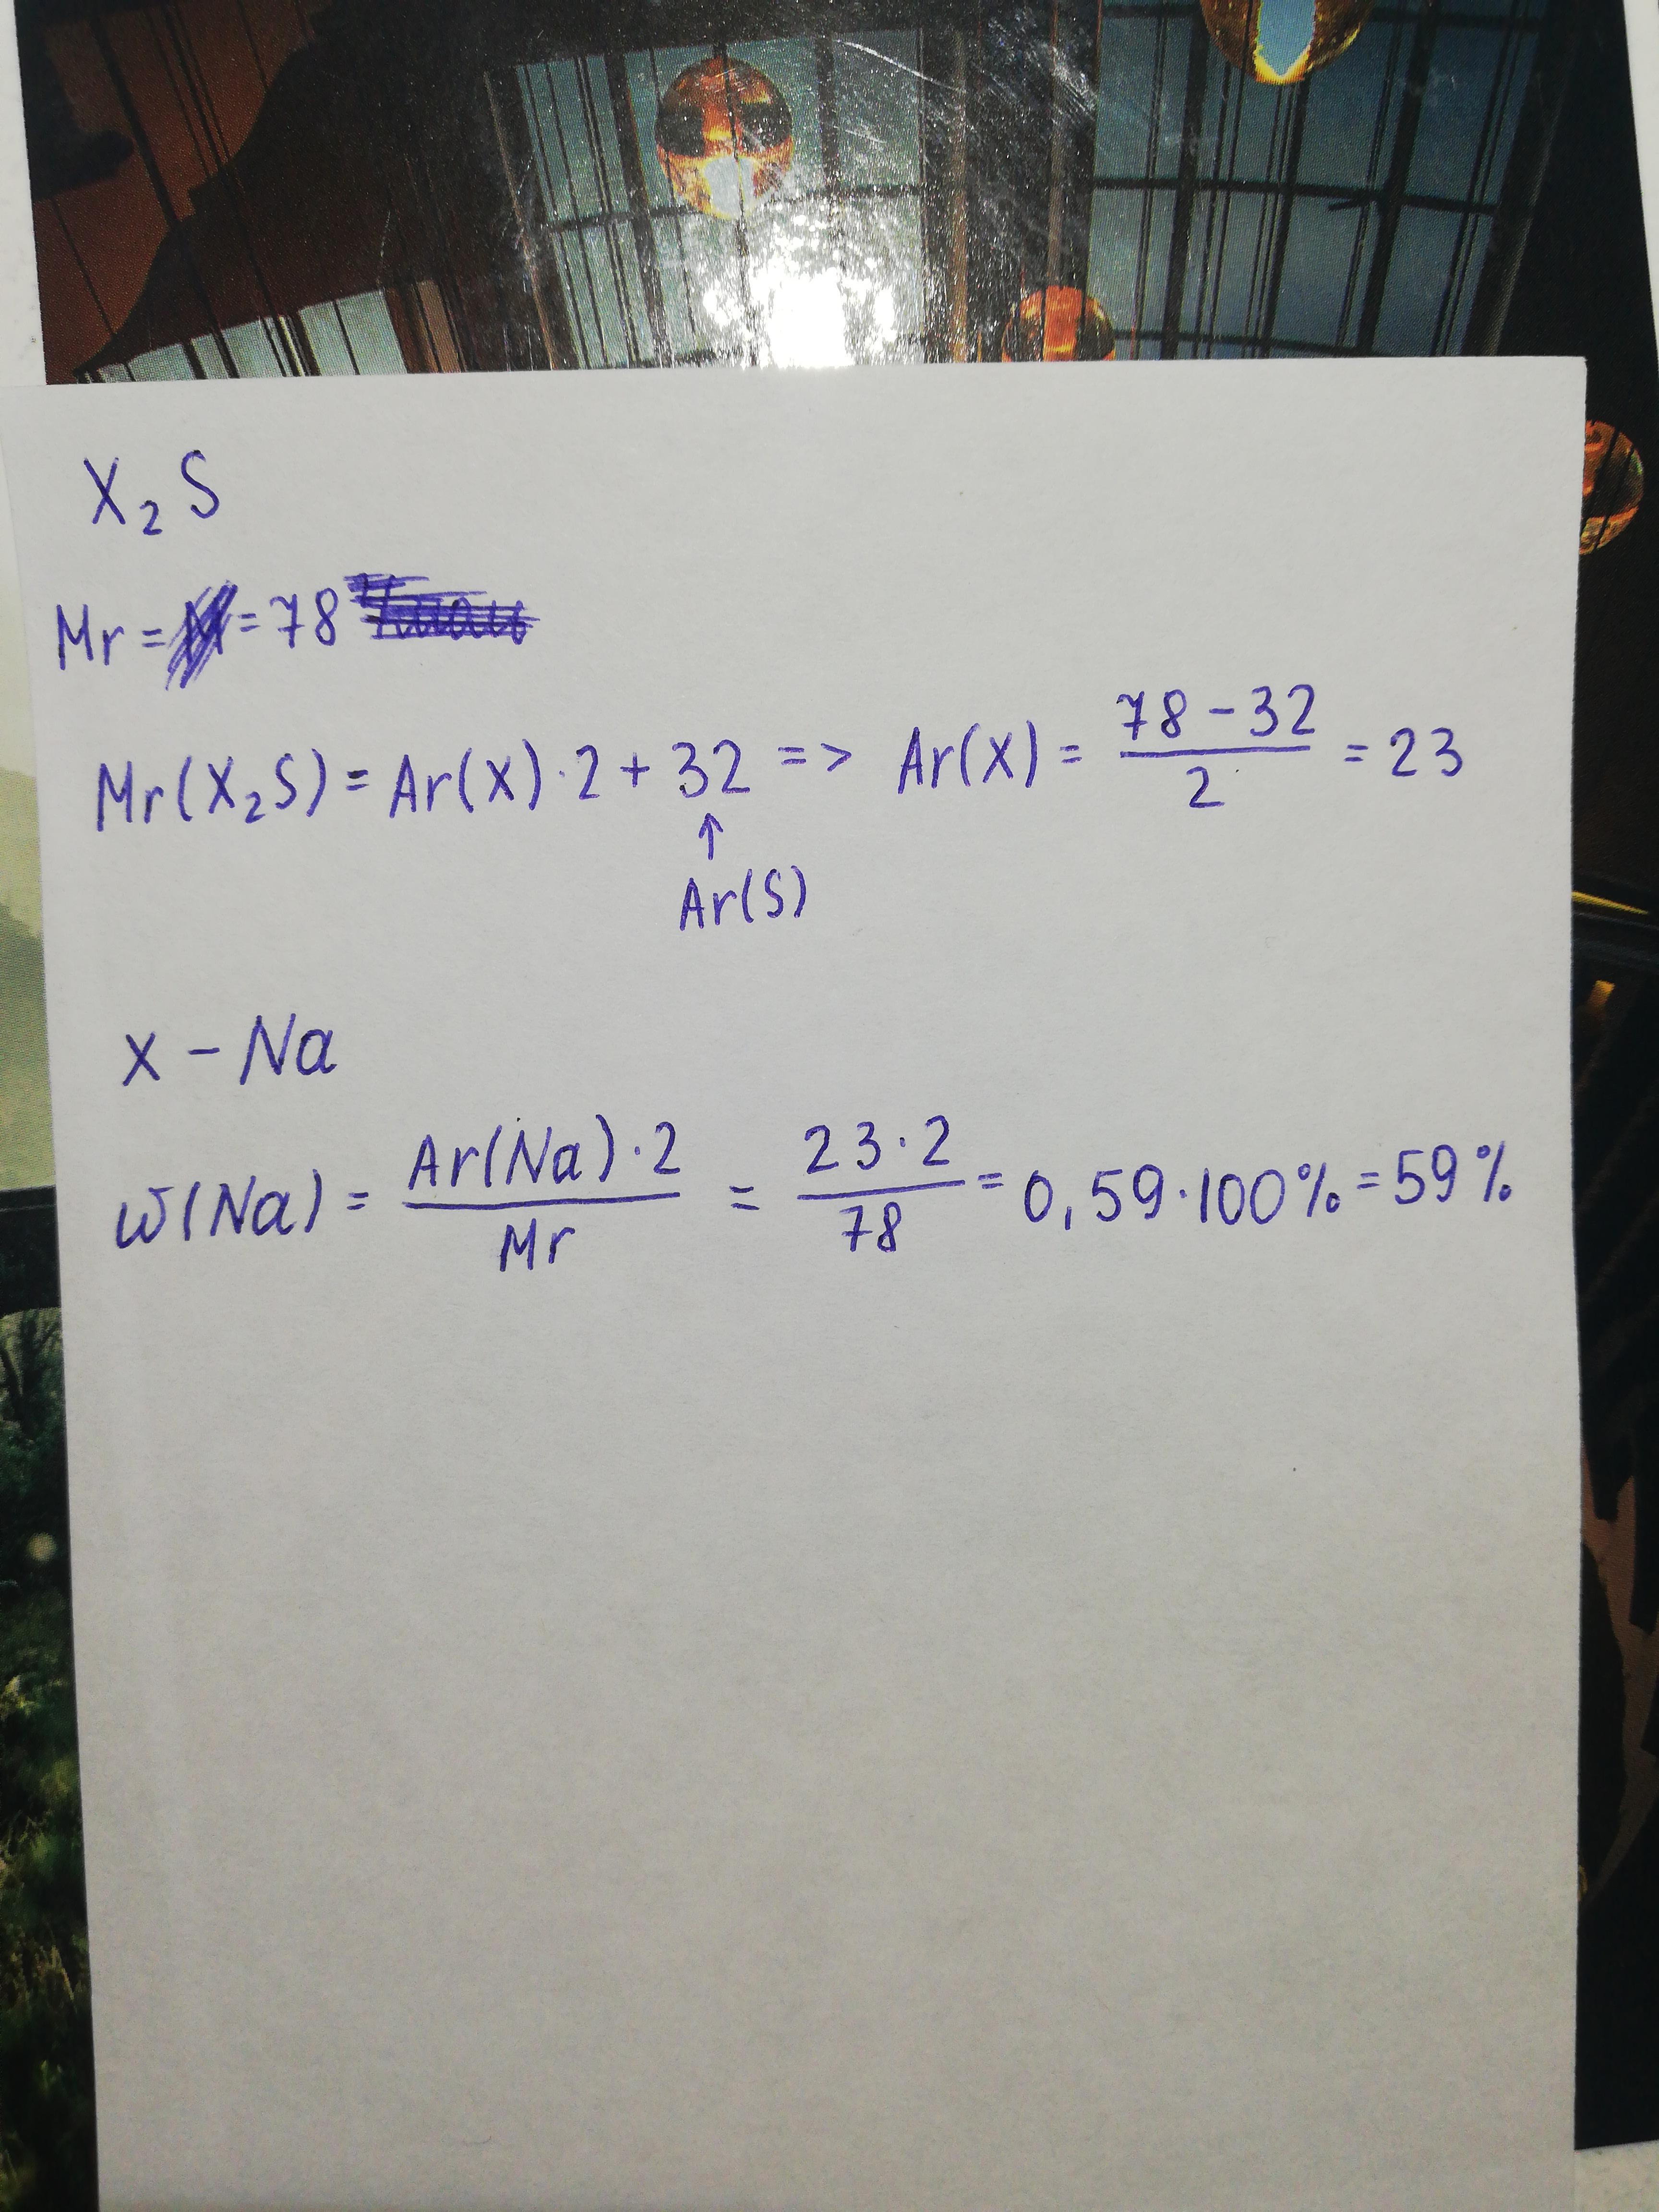 X₂S
Mr = = 78
Mr(X₂S) = Ar(X)·2 + 32 => Ar(X) = (78 - 32)/2 = 23
↑
Ar(S)
X - Na
ω(Na) = (Ar(Na)·2)/Mr = (23·2)/78 = 0,59·100% = 59%